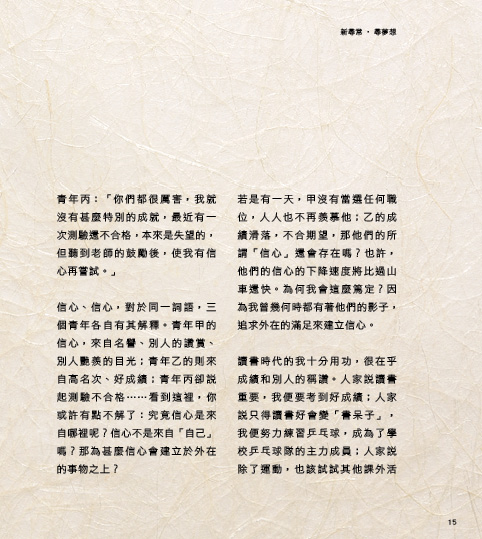 新尋常・尋夢想
青年丙：「你們都很厲害，我就
沒有甚麼特別的成就，最近有一
次測驗還不合格，本來是失望的，
但聽到老師的鼓勵後，使我有信
心再嘗試。」
信心、信心，對於同一詞語，三
個青年各自有其解釋。青年甲的
信心，來自名譽、別人的讚賞、
別人艷羨的目光；青年乙的則來
自高名次、好成績；青年丙卻說
起測驗不合格……看到這裡，你
或許有點不解了：究竟信心是來
自哪裡呢？信心不是來自「自己」
嗎？那為甚麼信心會建立於外在
的事物之上？
若是有一天，甲沒有當選任何職
位，人人也不再羨慕他；乙的成
績滑落，不合期望，那他們的所
謂「信心」還會存在嗎？也許，
他們的信心的下降速度將比過山
車還快。為何我會這麼篤定？因
為我曾幾何時都有著他們的影子，
追求外在的滿足來建立信心。
讀書時代的我十分用功，很在乎
成績和別人的稱讚。人家說讀書
重要，我便要考到好成績；人家
說只得讀書好會變「書呆子」，
我便努力練習乒乓球，成為了學
校乒乓球隊的主力成員；人家說
除了運動，也該試試其他課外活
15